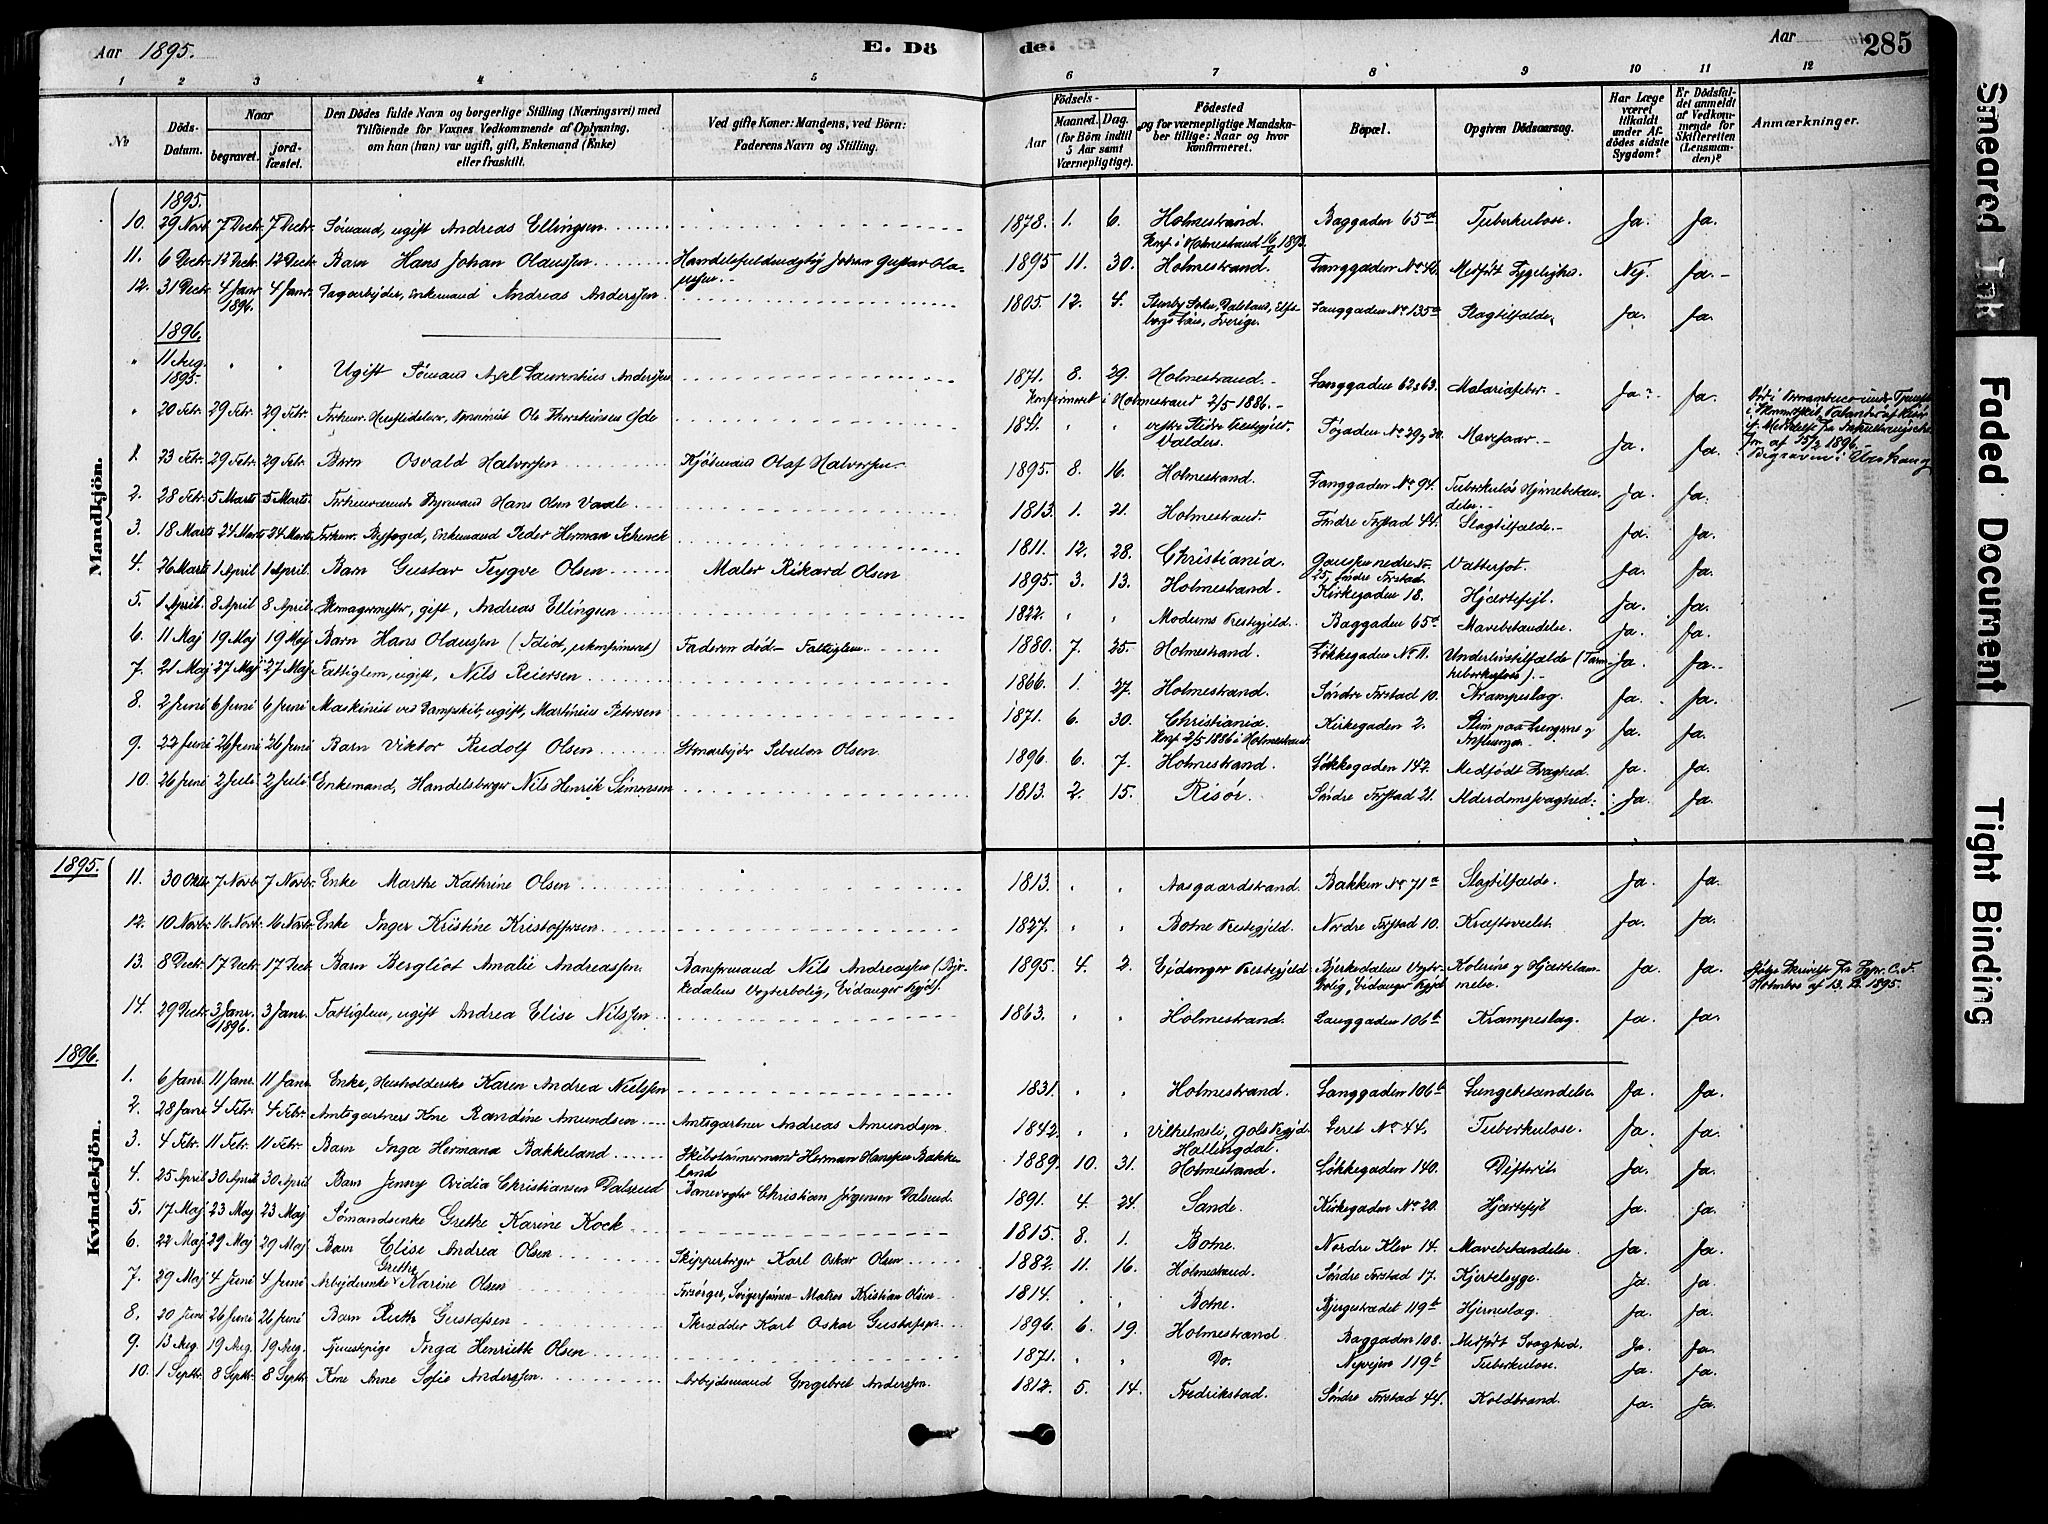 Aar 1895. E. Döde. Aar 285
1 2 3 4 5 6 7 8 9 10 11 12
№ Döds-Datum. Naar begravet. jordfæstet. Den Dödes fulde Navn og borgerlige Stilling (Næringsvei) med Tilföiende for Voxnes Vedkommende af Oplysning, om han (hun) var ugift, gift, Enkemand (Enke) eller fraskilt. Ved gifte Koner: Mandens, ved Börn: Faderens Navn og Stilling. Födsels- Aar Maaned. Dag. (for Börn indtil 5 Aar samt Værnepligtige). Födested og for værnepligtige Mandskaber tillige: Naar og hvor konfirmeret. Bopæl. Opgiven Dödsaarsag. Har Læge været tilkaldt under Afdödes sidste Sygdom? Er Dödsfaldet anmeldt af Vedkommende for Skifteretten (Lensmanden)? Anmærkninger.
Mandkjön.
1895.
10. 29 Novbr. 7 Decbr. 7 Decbr. Sömand, ugift Andreas Ellingsen 1878. 1. 6. Holmestrand. Konf. i Holmestrand 1893. Baggaden 65a Tuberkulose. Ja. Ja.
11. 6 Decbr. 12 Decbr. 12 Decbr. Barn Hans Johan Olaussen Johan Gustav Olaussen. 1895 11. 30. Holmestrand. Langgaden No 42. Medfödt Nej. Ja.
12. 31 Decbr. 4 Janr. 1896. 4 Janr. Dagarbejder, Enkemand Andreas Anderssen 1805. 12. 4. Dalsland, Elfsborgs Län, Sverige. Langgaden No 135a Slagtilfælde. Ja. Ja.
1896.
" 11 Aug. 1895. " " Ugift Sömand Axel Laurentius Anderssen 1871. 8. 29. Holmestrand. Konfirmeret i Holmestrand 2/5 1886. Langgaden 62 & 63. Malariafeber. Ja. Ja. Död i Pernambuco under Tjeneste
" 20 Febr. 29 Febr. 29 Febr. Ole Thorstensen Öde 1841. " " vestre Slidre Prestegjeld. Valders. Tøgaden No 29 & 30. Mavesaar. Ja. Ja. af 15/2 1896. Begraven i
1. 23 Febr. 29 Febr. 29 Febr. Barn Osvald Halvorsen Kjöbmand Olaf Halvorsen 1895. 8. 16. Holmestrand. Langgaden No 94. Tuberkulös Hjernebetændelse. Ja. Ja.
2. 28 Febr. 5 Marts 5 Marts. Forhenværende Hans Olsen Vaale 1813. 1. 21. Holmestrand. Søndre Forstad 44. Slagtilfælde. Ja. Ja.
3. 18 Marts 24 Marts 24 Marts Forhenv. Byfoged, Enkemand Peder Herman Schenck 1811. 12. 28. Christiania. 25, Søndre Forstad. Vattersot. Ja. Ja.
4. 26 Marts 1 April 1 April. Barn Gustav Trygve Olsen Maler Rikard Olsen 1895. 3. 13. Holmestrand. Kirkegaden 18. Hjærtefejl. Ja. Ja.
5. 1 April. 8 April 8 April. Skomagermester, gift, Andreas Ellingsen 1822. " " Modums Prestegjeld. Baggaden 65a Mavebetændelse. Ja. Ja.
6. 11 Maj 19 Maj 19 Maj Barn Hans Olaussen (Idiot, ukonfirmeret) Faderen död. Fattiglem. 1880. 7. 25. Holmestrand. Løkkegaden No 11. Underlivstilfælde (Tarmtuberkulose). Ja. Ja.
7. 21 Maj 27 Maj 27 Maj Fattiglem, ugift, Nils Reiersen 1866. 1. 27. Holmestrand. Søndre Forstad 10. Krampeslag. Ja. Ja.
8. 2 Juni 6 Juni 6 Juni Maskinist ved Dampskib, ugift, Martinius Petersen 1871. 6. 30. Christiania. Konf. 2/5 1886 i Holmestrand. Kirkegaden 2. Slim paa Lungerne & Influenza. Ja. Ja.
9. 22 Juni 26 Juni 26 Juni Barn Viktor Rudolf Olsen Stenarbejder Sebulon Olsen. 1896. 6. 7. Holmestrand. Løkkegaden 142. Medfödt Svaghed. Ja. Ja.
10. 26 Juni 2 Juli 2 Juli Enkemand, Handelsborger Nils Henrik Simonsen 1813. 2. 15. Risör. Søndre Forstad 21. Alderdomssvaghed. Ja. Ja.
Kvindekjön.
1895.
11. 30 Oktbr. 7 Novbr. 7 Novbr. Enke Marthe Kathrine Olsen 1813. " " Aasgaardstrand. Bakken No 71a Slagtilfælde. Ja. Ja.
12. 10 Novbr. 16 Novbr. 16 Novbr. Enke Inger Kristine Kristoffersen. 1827. " " Botne Prestegjeld. Nordre Forstad 10. Kræftsvulst. Ja. Ja.
13. 8 Decbr. 17 Decbr. 17 Decbr. Barn Bergliot Amalie Andreassen. Baneformand Nils Andreassen (Bjerkedalens Vogterbolig, Eidanger Prgjd). 1895. 4. 2. Eidanger Prestegjeld Bjerkedalens Vogterbolig, Eidanger Prgjd. Kolerine & Hjertelammelse. Ja. Ja. Ifølge Skrivelse fra Sgpr. C. F. Holmboe af 13. 12. 1895.
14. 29 Decbr. 3 Janr. 1896. 3 Janr. Fattiglem, ugift Andrea Elise Nilssen 1863. " " Holmestrand. Langgaden 106b Krampeslag. Ja. Ja.
1896.
1. 6 Janr. 11 Janr. 11 Janr. Enke, Husholderske Karen Andrea Nielssen 1831. " " Holmestrand. Langgaden 106b Lungebetændelse. Ja. Ja.
2. 28 Janr. 4 Febr. 4 Febr. Amtsgartners Kone Randine Amundsen Amtsgartner Andreas Amundsen. 1842. " " Vilhelmsli, Gols Prgjd. Hallingdal. Leret No 44. Tuberkulose. Ja. Ja.
3. 4 Febr. 11 Febr. 11 Febr. Barn Inga Hermana Bakkeland Skibstömmermand Herman Hansen Bakkeland 1889. 10. 31. Holmestrand. Løkkegaden 140. Difterit. Ja. Ja.
4. 25 April 30 April 30 April Barn Jenny Ovidia Christiansen Dalsrud Banevogter Christian Jörgensen Dalsrud. 1891. 4. 24. Sande. Kirkegaden No 20. Hjærtefejl Ja. Ja.
5. 17 Maj 23 Maj 23 Maj Sömandsenke Grethe Karine Kock 1815. 8. 1. Botne. Nordre Klev 14. Mavebetændelse. Ja. Ja.
6. 22 Maj 29 Maj 29 Maj Barn Elise Andrea Olsen Skipperborger Karl Oskar Olsen 1882. 11. 16. Holmestrand. Søndre Forstad 17. Kjertelsyge. Ja. Ja.
7. 29 Maj 4 Juni 4 Juni Arbejderenke Grethe Karine Olsen Forsörger, Svigersönnen Matros Kristian Olsen 1814. " " Botne. Bjergestrædet 119b Hjerneslag. Ja. Ja.
8. 20 Juni 26 Juni 26 Juni Barn Ruth Gustafsen Skrædder Karl Oskar Gustafsen 1896. 6. 19. Holmestrand Baggaden 108. Medfödt Svaghed. Ja. Ja.
9. 13 Aug. 19 Aug. 19 Aug. Tjenestepige Inga Henriette Olsen 1871. " " Do. Nyvejen 119b Tuberkulose. Ja. Ja.
10. 1 Septbr. 8 Septbr. 8 Septbr Kone Anne Sofie Anderssen Arbejdsmand Engebret Anderssen. 1812. 5. 14. Fredrikstad. Søndre Forstad 44. Koldbrand. Ja. Ja.
Smeared Ink
Faded Document
Tight Binding